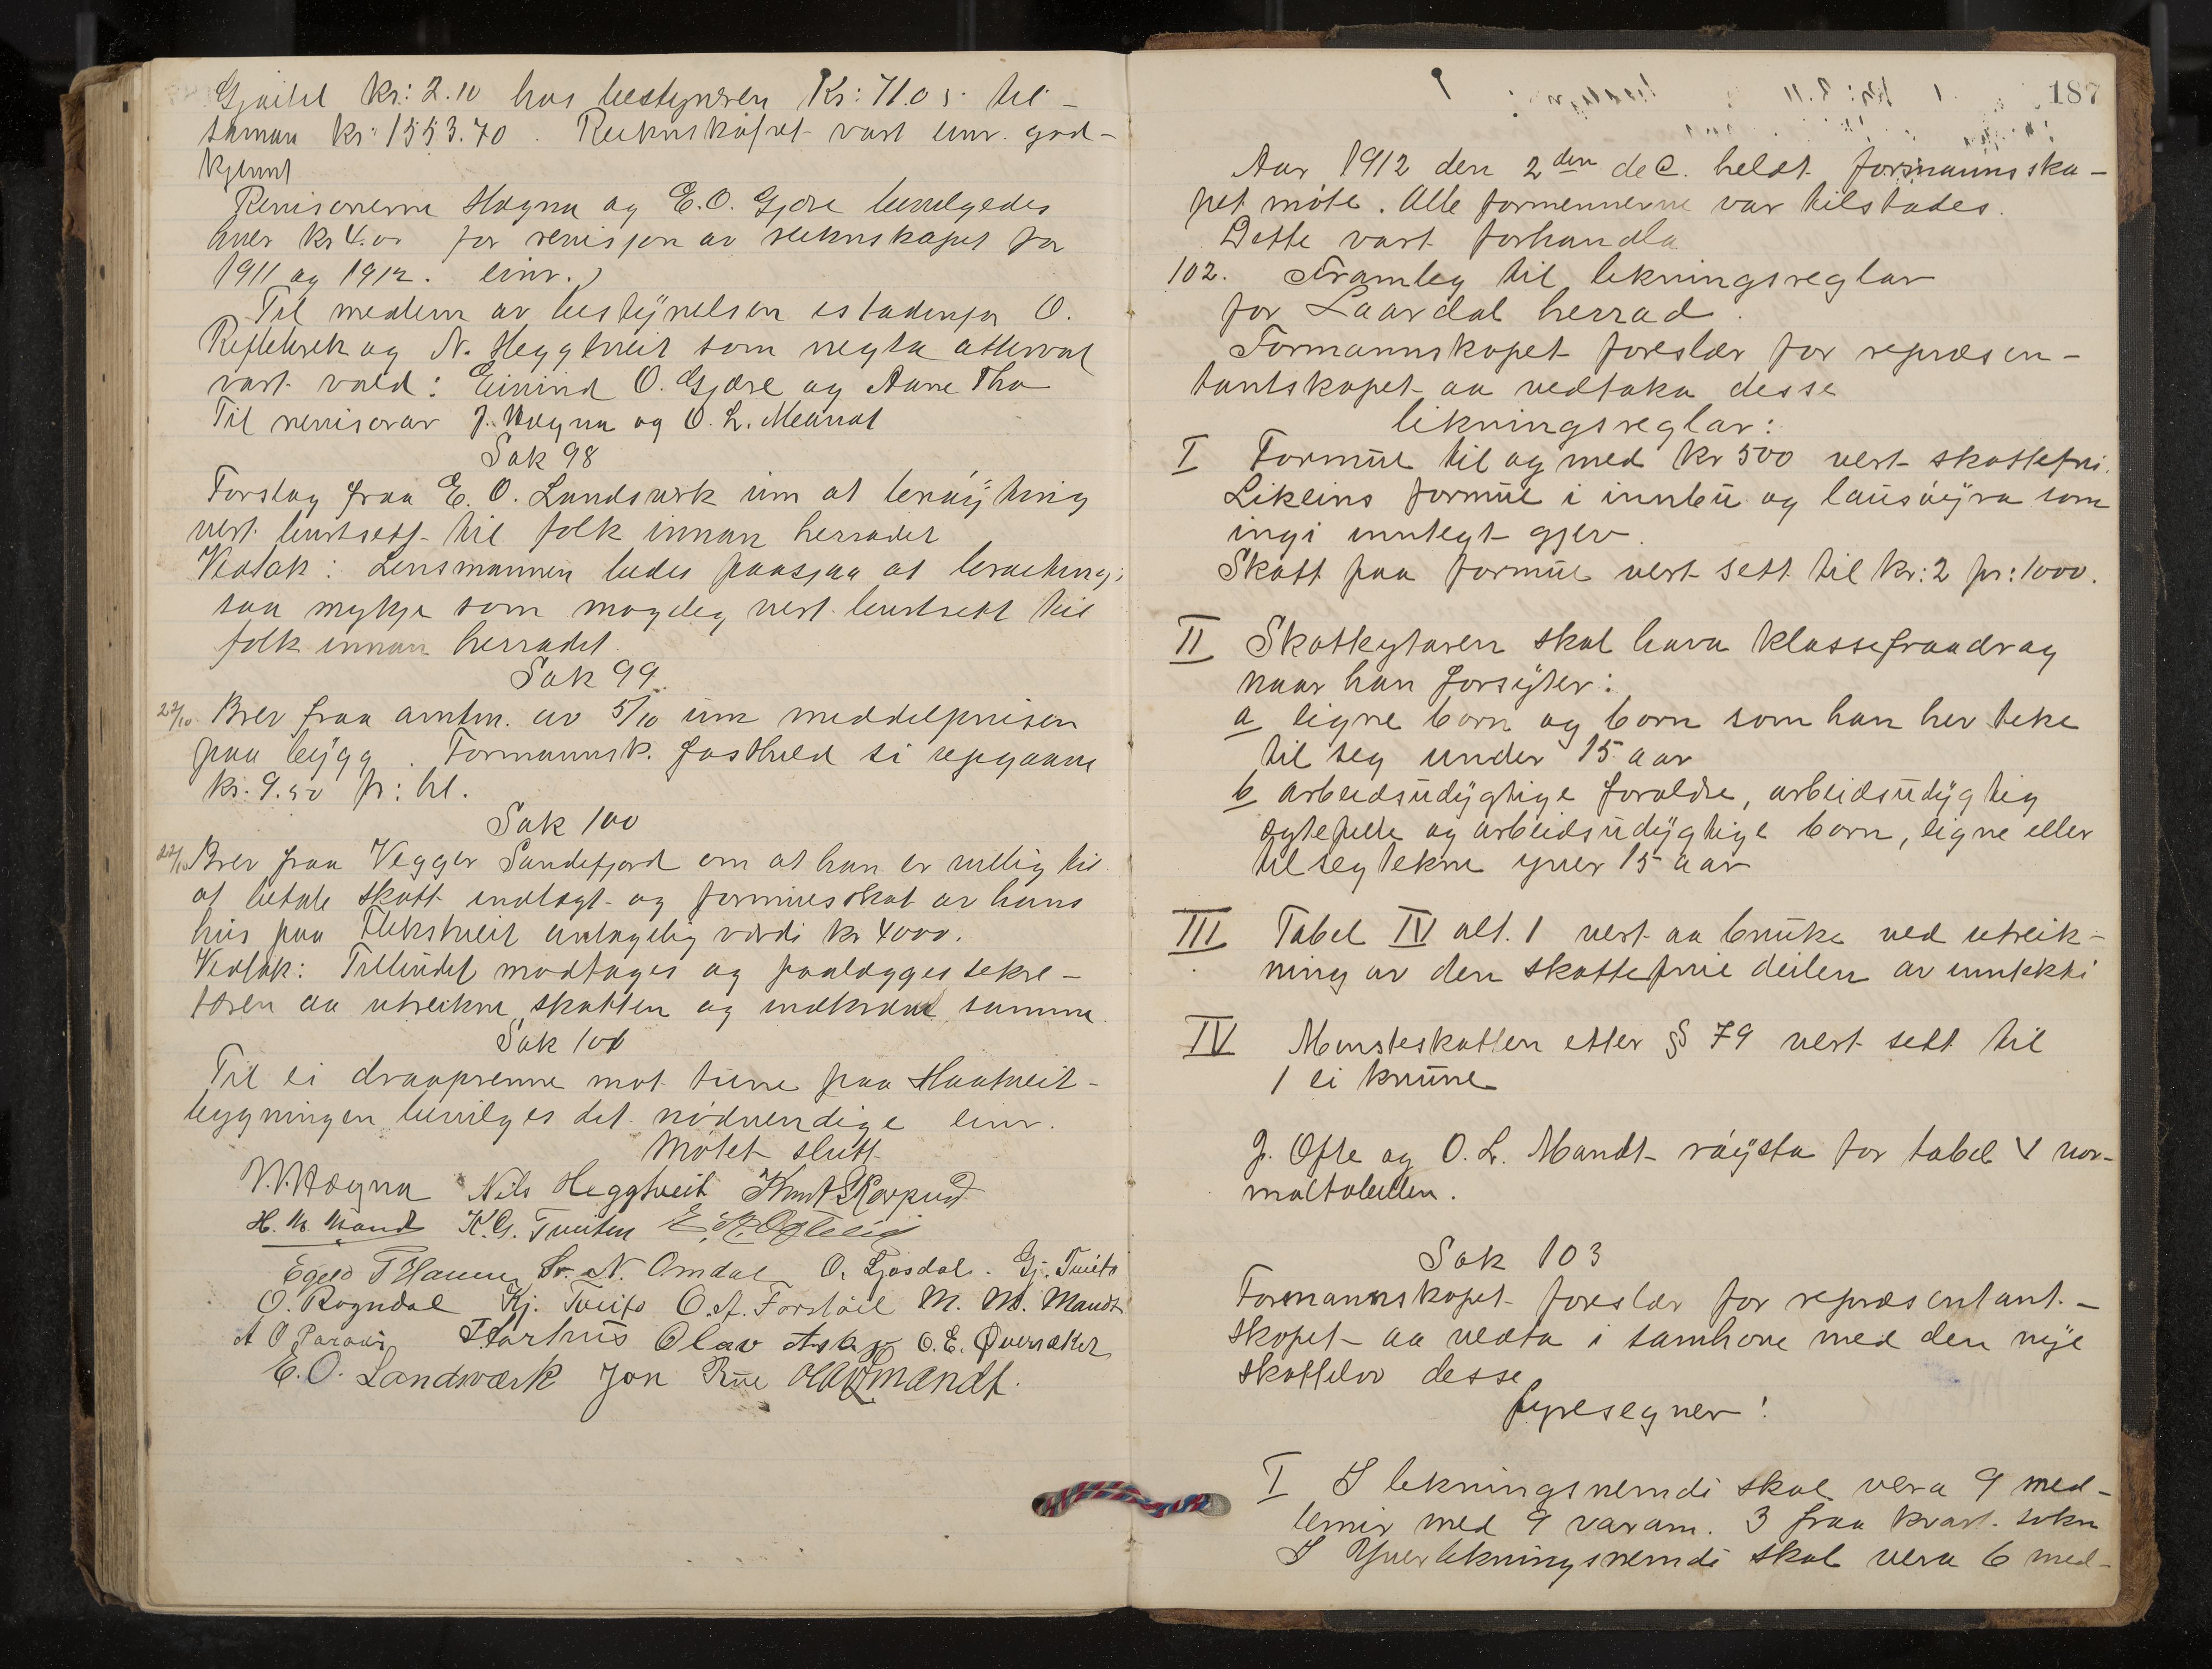 Gjeitel kr: 2.10 hos bestyreren Kr: 71.05 til-
saman kr: 1553.70. Rekneskapet vart einr. god-
kjent
Revisorerne Høgna og E.O. Gjøse bevilgedes
hver kr 4.00 for revisjon av rekneskapet for
1911 og 1912. einr.)
Til medlem av bestyrelsen istadenfor O.
og N. Heggtveit som negta atterval
vart vald: Eivind O. Gjøse og Aane Tho
Til revisorar J. Høgna og O. L. Meaat
Sak 98
Forslag fraa E. O. Landsverk um at
vert burtsett til folk innan herradet
Vedtak: Lensmannen bedes paasjaa at
saa mykje som mogleg vert burtsett til
folk innan herradet.
Sak 99.
22/10. Brev fraa amtm. av 5/10 um meddelprisen
paa bygg. Formannsk. fastheld si uppgaave
kr. 9.50 pr: hl.
Sak 100
22/10 Brev fraa Vegger Sandefjord om at han er villig til
at betale skatt indtægt- og formuesskat av hans
hus paa antagelig verdi kr 4000.
Vedtak: Tilbudet modtages og paalegges sekre-
tæren aa utreikne skatten og indkræve samme.
Sak 101
Til ei draaprenne mot tune paa Haatveit-
bygningen bevilges det nödvendige einr.
Møtet slutt
V. Høgna Nils Heggtveit Knut Skarprud
H. M. Mandt K.G. Tveiten
Sv. N. Omdal O. Ljosdal. Gj. Tveito
O. Rogndal Kj. Tveito O. A. Forstöil M. M. Mandt
Aarhus Olav Askje O. E. Qversaker
E. O. Landsværk Jon Rue Olav L. Mandt.
187
Aar 1912 den 2den dec. heldt formannsska-
pet møte. Alle formennerne var tilstades.
Dette vart forhandla
102. Framleg til likningsreglar
for Laardal herrad.
Formannskapet foreslær for repræsen-
tantskapet aa vedtaka desse
likningsreglar:
I Formue til og med kr 500 vert skattefri.
Likeins formue i innbu og lausöyra som
ingi inntegt gjev.
Skatt paa formue vert sett til kr: 2 pr: 1000.
II Skatteytaren skal hava klassefraadrag
naar han forsyter:
a eigne born og born som han hev teke
til seg under 15 aar
b arbeidsudygtige foreldre, arbeidsudygtig
egtefelle og arbeidsudygtige born, eigne eller
til seg tekne yver 15 aar
III Tabel IV alt. 1 vert aa bruke ved utreik-
ning av den skattefrie deilen av inntekti
IV Minsteskatten etter § 79 vert sett til
1 ei krune
J. Ofte og O. L. Mandt röysta for tabel V nor-
maltabellen.
Sak 103
Formannskapet foreslær for repræsentant-
skapet aa vedta i samhøve med den nye
skattelov desse
fyresegner:
I I likningsnemdi skal vera 9 med-
lemir med 9 varam. 3 fraa kvart sokn
I Yverlikningsnemdi skal vera 6 med-